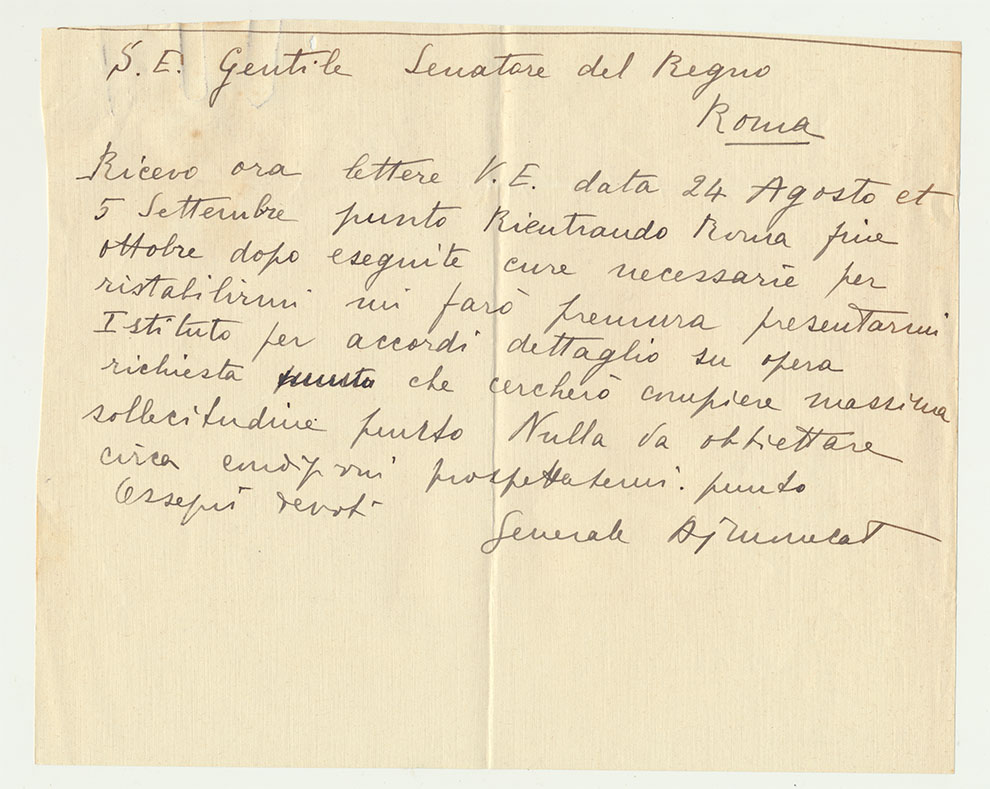 S. E. Gentile Senatore del Regno
Roma
Ricevo ora lettere V. E. data 24 Agosto et
5 Settembre punto Rientrando Roma fine
ottobre dopo eseguite cure necessarie per
ristabilirmi mi farò premura presentarmi
Istituto per accordi dettaglio su opera
richiesta che cercherò compiere massima
sollecitudine punto Nulla da obbiettare
circa condizioni prospettatemi. punto
Ossequi devoti
Generale